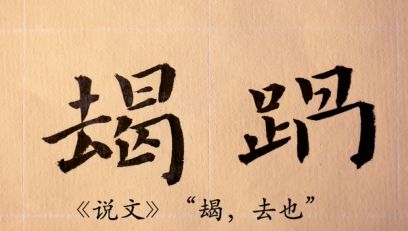 朅
《说文》“朅，去也”